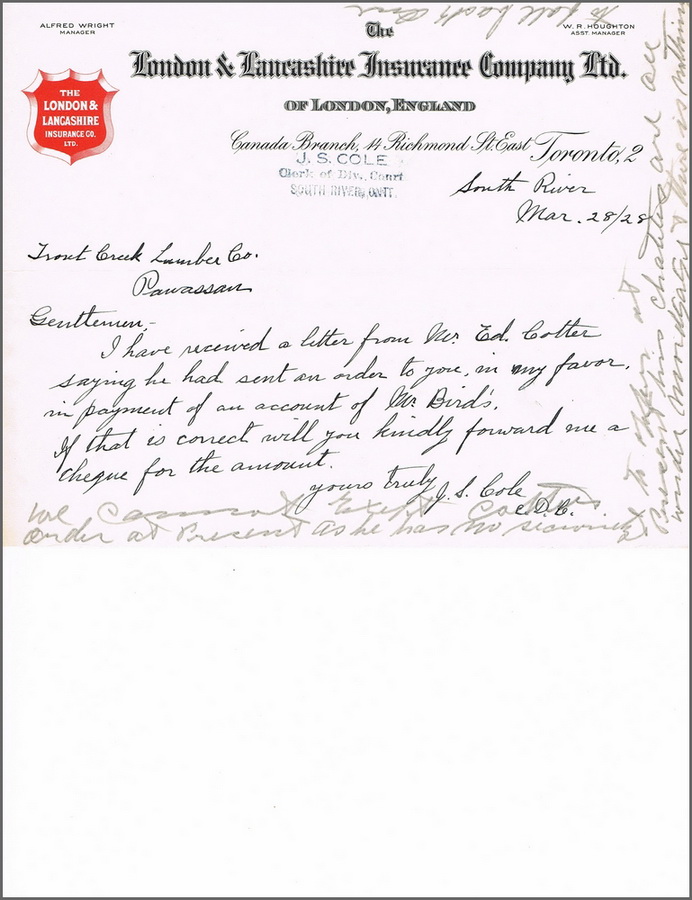 ALFRED WRIGHT
MANAGER
The
W. R. HOUGHTON
ASST. MANAGER
London & Lancashire Insurance Company Ltd.
OF LONDON, ENGLAND
THE
LONDON &
LANCASHIRE
INSURANCE CO.
LTD.
Canada Branch, 14 Richmond St. East Toronto, 2
J. S. COLE
Clerk of Div. Court
SOUTH RIVER, ONT.
South River
Mar. 28/28
Trout Creek Lumber Co.
Powassan
Gentlemen,-
I have received a letter from Mr. Ed. Cotter
saying he had sent an order to you, in my favor,
in payment of an account of Mr. Bird's.
If that is correct will you kindly forward me a
cheque for the amount.
yours truly J. S. Cole
C.D.C.
we cannot Exept Cotters
order at Present as he has no
to offer at
Present his chattles are all
under & there is nothing
to fall back